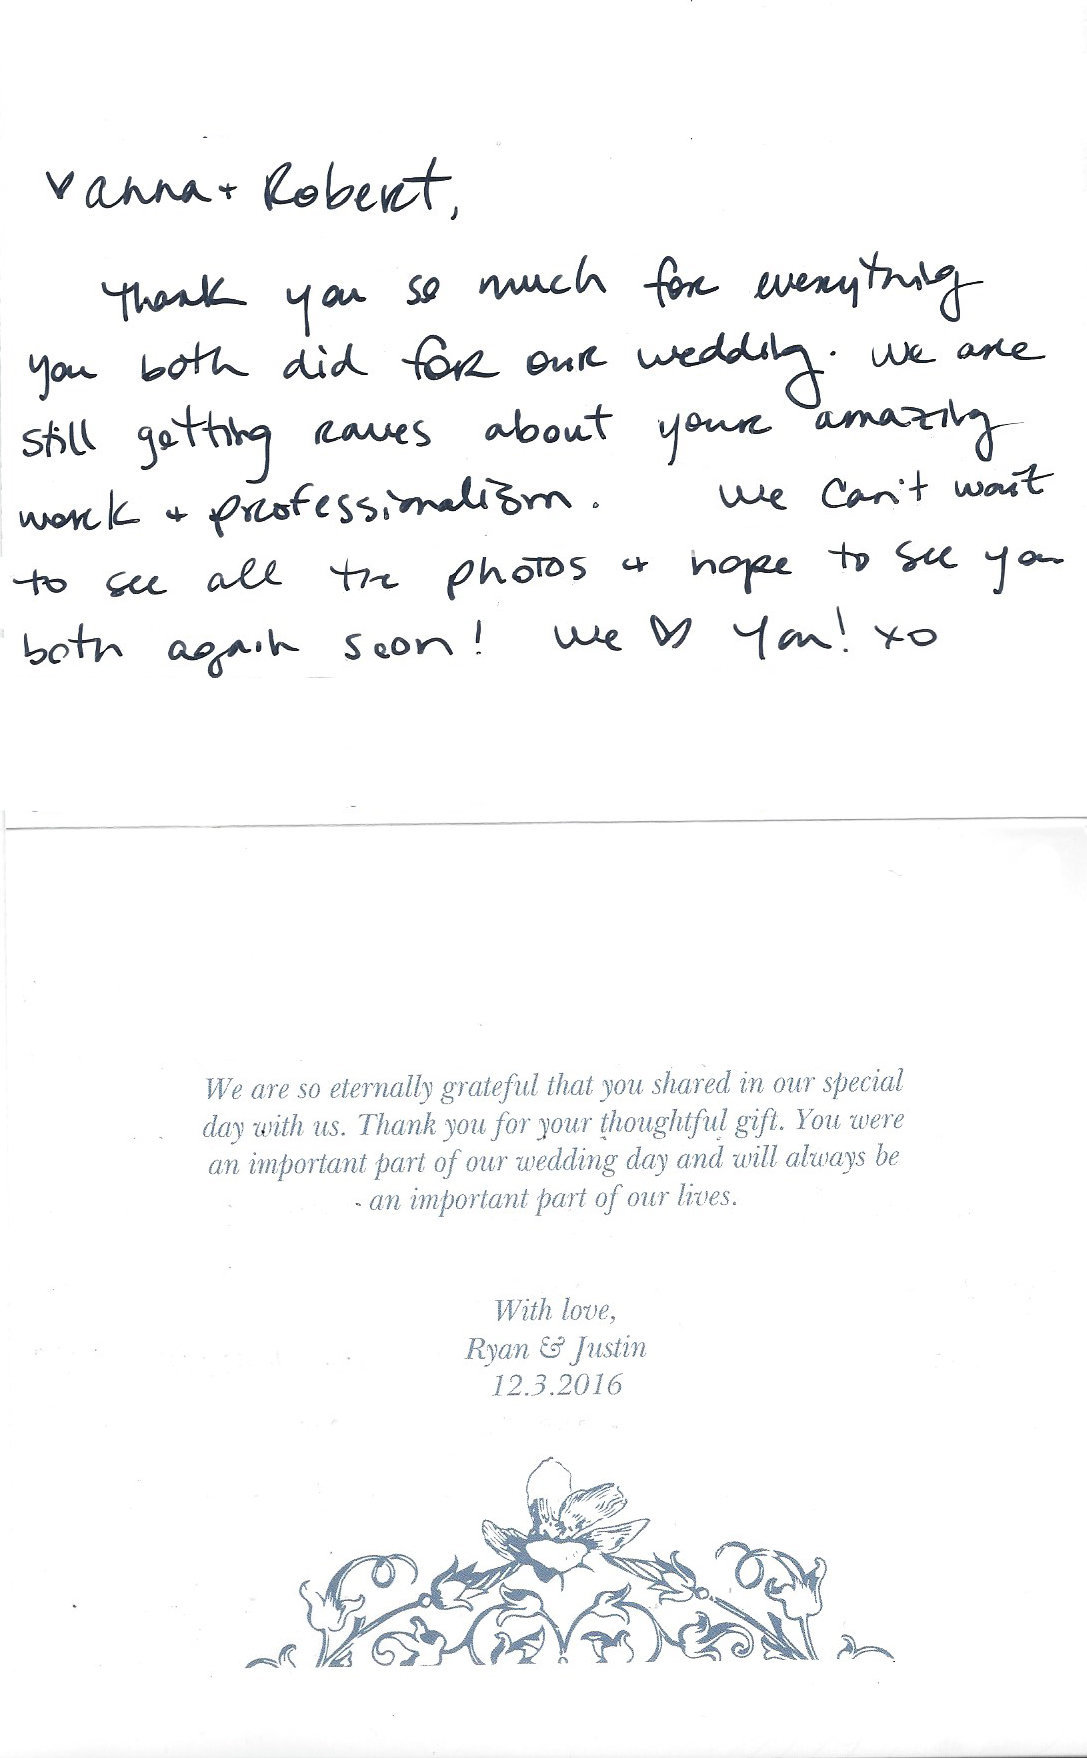 ♥ anna + Robert,
Thank you so much for everything
you both did for our wedding. We are
still getting raves about your amazing
work + professionalism. We can't wait
to see all the photos + hope to see you
both again soon! We ♡ you! xo
We are so eternally grateful that you shared in our special
day with us. Thank you for your thoughtful gift. You were
an important part of our wedding day and will always be
an important part of our lives.
With love,
Ryan & Justin
12.3.2016